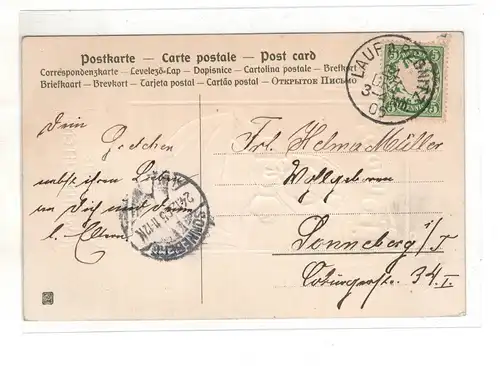 Postkarte – Carte postale – Post card
Correspondenzkarte – Levelező-Lap – Dopisnice – Cartolina postale – Brefkort
Briefkaart – Brevkort – Tarjeta postal – Cartão postal – Открытое Письмо
LAUF
05
Dein Gretchen
nebst ihren Lieben
an Dich und Deine
l. Eltern.
SONNEBERG
Frl. Helma Müller
Wohlgeboren
Sonneberg i/T
Coburgerstr. 34 I.